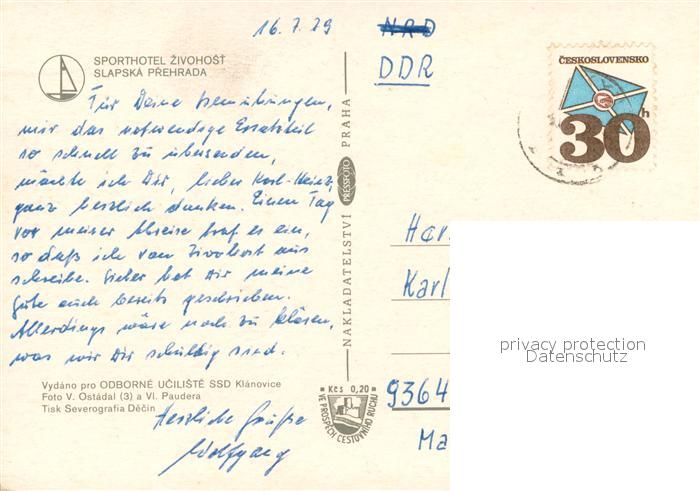 16.7.79
NRD
DDR
SPORTHOTEL ŽIVOHOŠŤ
SLAPSKÁ PŘEHRADA
ČESKOSLOVENSKO
30h
Für Deine Bemühungen,
mir das notwendige Ersatzteil
so schnell zu übersenden,
möchte ich Dir, lieber Karl-Heinz,
ganz herzlich danken. Einen Tag
vor meiner Abreise traf es ein,
so daß ich von Živohost aus
schreibe. Sicher hat Dir meine
Güte auch bereits geschrieben.
Allerdings wäre noch zu klären,
was wir Dir schuldig sind.
Herzliche Grüße
Wolfgang
Vydáno pro ODBORNÉ UČILIŠTĚ SSD Klánovice
Foto V. Ostádal (3) a Vl. Paudera
Tisk Severografia Děčín
NAKLADATELSTVÍ PRESSFOTO PRAHA
Kčs 0,20
VE PROSPĚCH CESTOVNÍHO RUCHU
Her
Karl
9364
Ma
privacy protection
Datenschutz